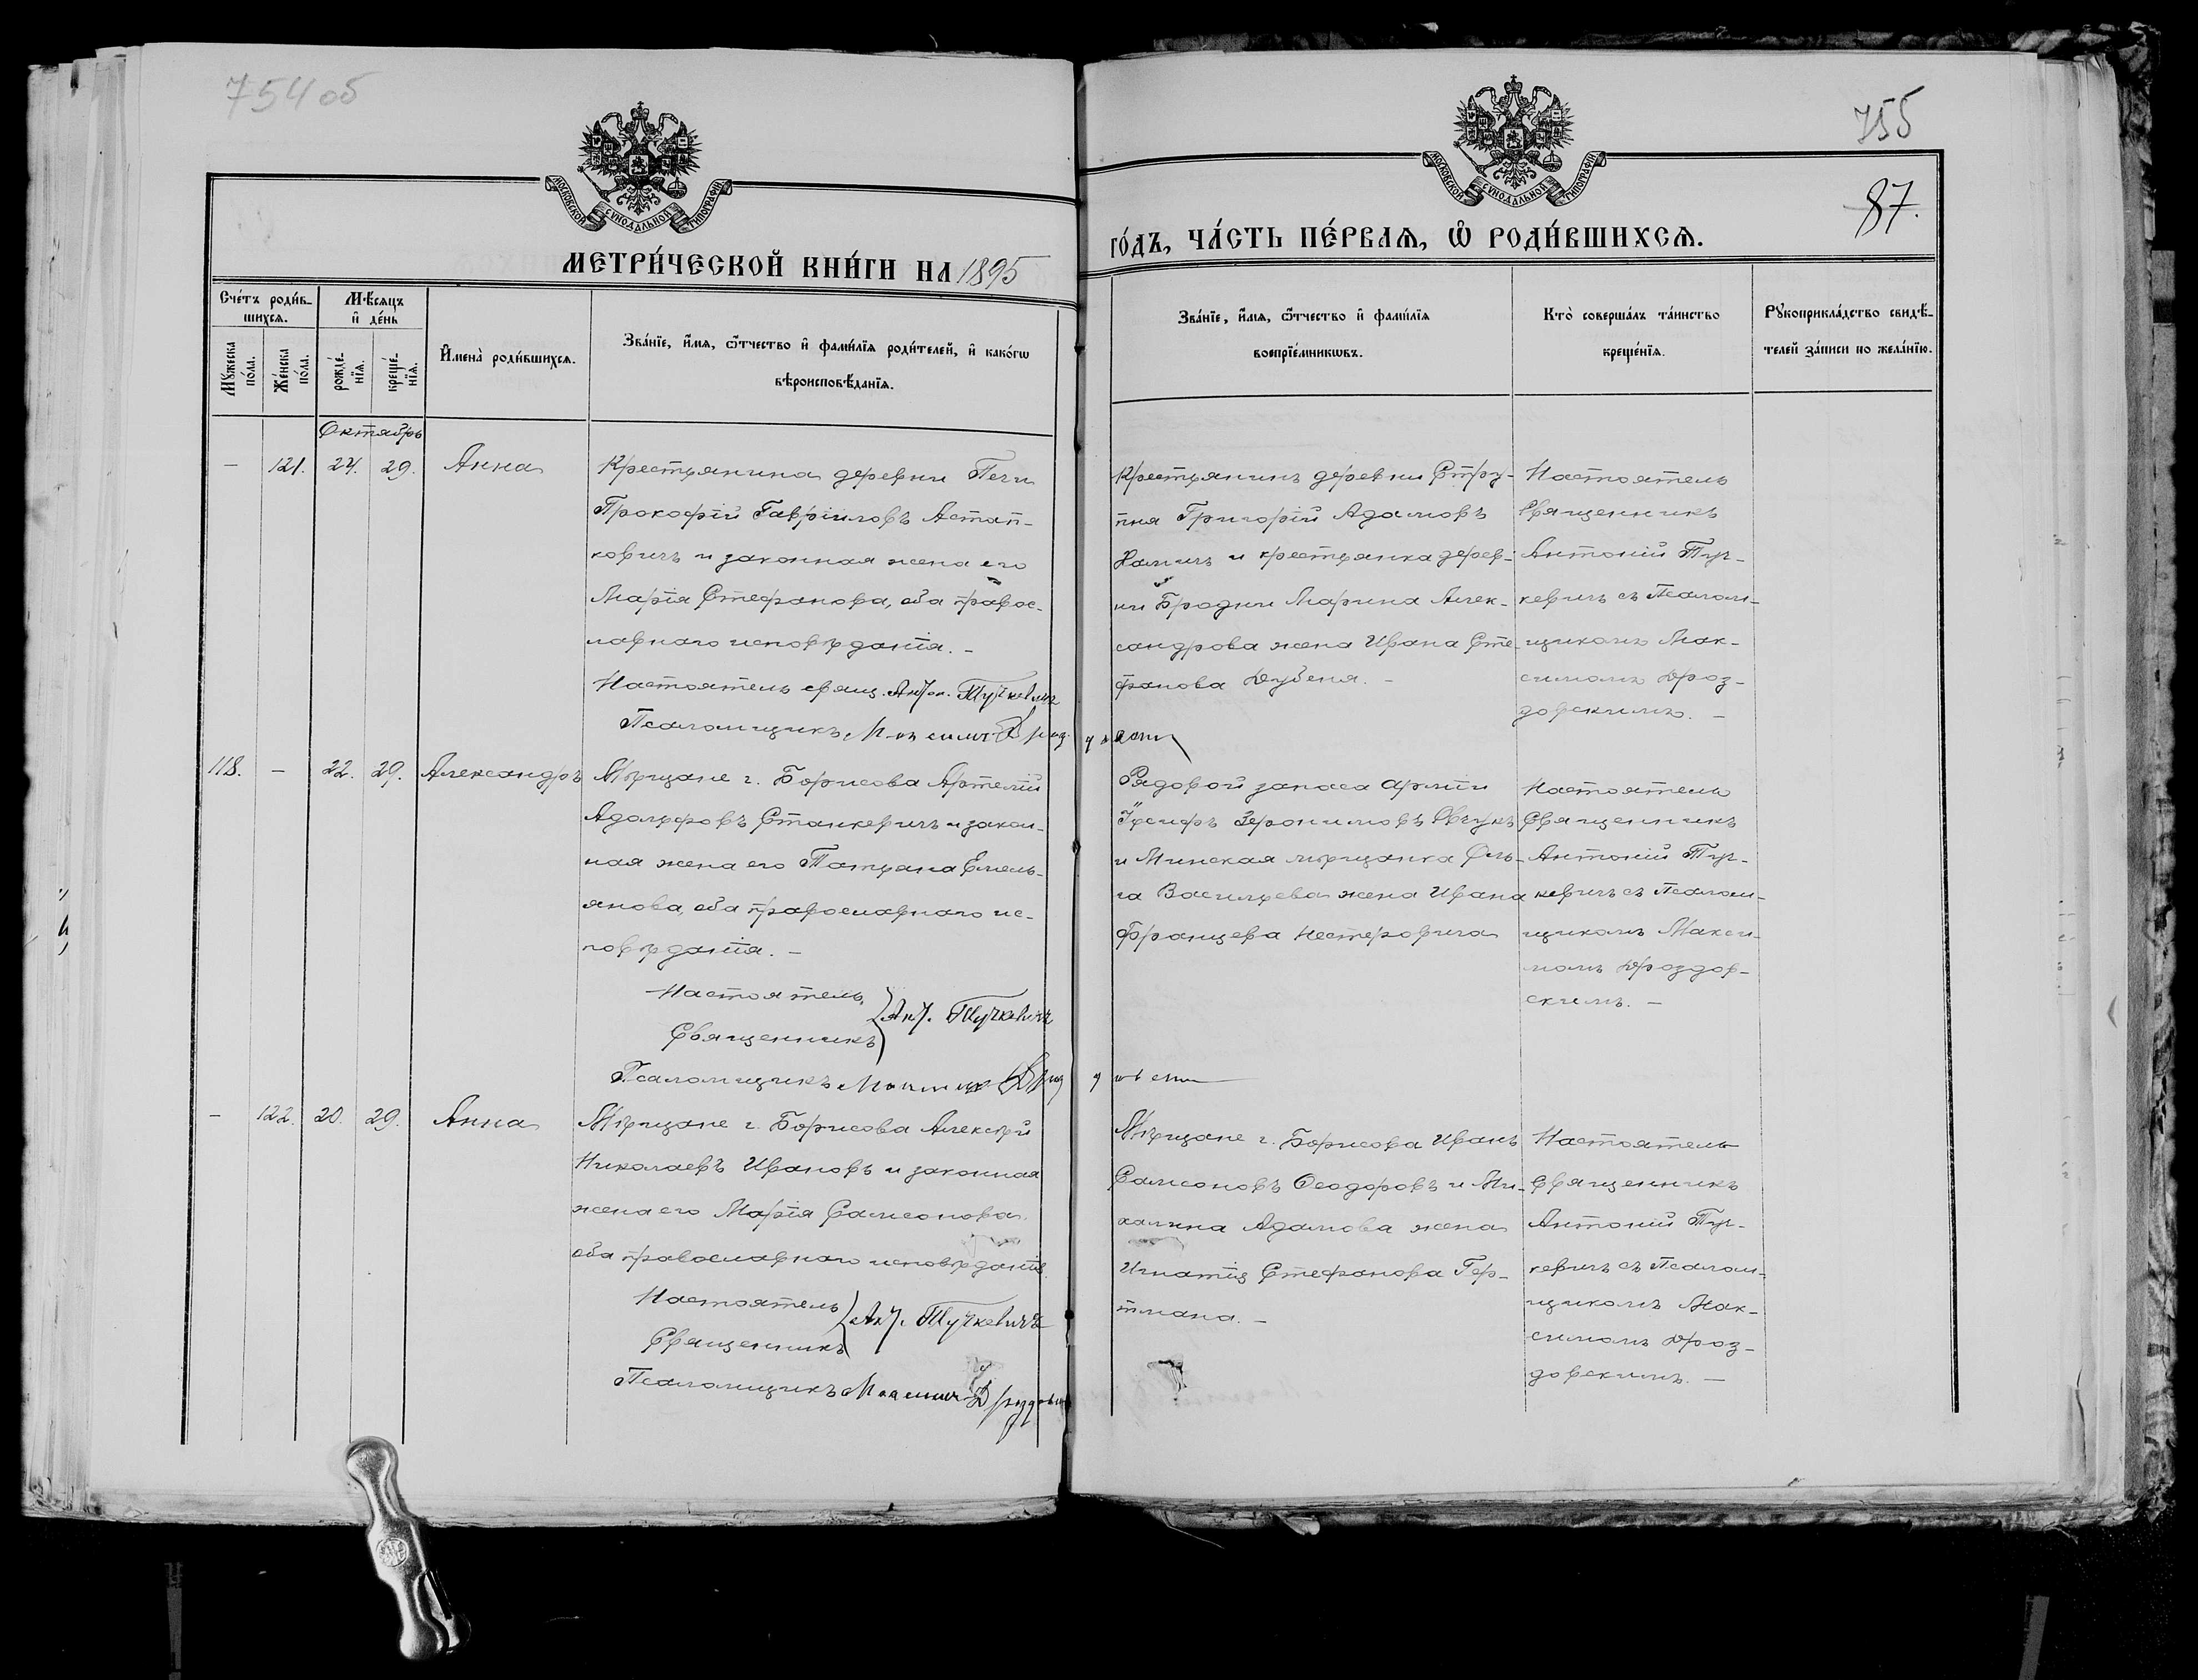 754 об
755
87.
МОСКОВСКОЙ СѴНОДАЛЬНОЙ ТИПОГРАФІИ
МОСКОВСКОЙ СѴНОДАЛЬНОЙ ТИПОГРАФІИ
МЕТРИ́ЧЕСКОЙ КНИ́ГИ НА 1895
ГО́ДЪ, ЧА́СТЬ ПЕ́РВАѦ, Ѽ РОДИ́ВШИХСѦ.
Сче́тъ роди́в-
шихсѧ.
Мꙋ́жеска по́ла.
Же́нска по́ла.
Мѣ́сѧцъ
и҆ де́нь
рожде́-
нїѧ.
креще́-
нїѧ.
И҆мена̀ роди́вшихсѧ.
Зва́нїе, и҆́мѧ, ѻ҆́тчество и҆ фамѵ́лїѧ роди́телей, и҆ како́гѡ
вѣроисповѣ́данїѧ.
Зва́нїе, и҆́мѧ, ѻ҆́тчество и҆ фамѵ́лїѧ
воспрїе́мникѡвъ.
Кто̀ соверша́лъ та́инство
креще́нїѧ.
Рꙋкоприкла́дство свидѣ́-
телей за́писи по жела́нїю.
Октябрь
— 121. 24. 29. Анна
Крестьянина деревни Печи
Прокофій Гавріиловъ Астап-
ковичъ и законная жена его
Марія Стефанова, оба правос-
лавнаго исповѣданія. –
Настоятель свящ. Антон. Тучкевичъ
Псаломщикъ Максимъ Дроздовскій
Крестьянинъ деревни Стру-
пня Григорій Адамовъ
и крестьянка дерев-
ни Бродни Марина Алек-
сандрова жена Ивана Сте-
фанова Дубеня. –
Настоятель
Священникъ
Антоній Туч-
кевичъ съ Псалом-
щикомъ Мак-
симомъ Дроз-
довскимъ. –
118. — 22. 29. Александръ
Мѣщане г. Борисова Артемій
Адольфовъ Станкевичъ и закон-
ная жена его Татьяна Емель-
янова, оба православнаго ис-
повѣданія. –
Настоятель
Священникъ } Ант. Тучкевичъ
Псаломщикъ Максимъ Дроздовскій
Рядовой запаса арміи
Іосифъ Іеронимовъ
и Минская мѣщанка Оль-
га Васильева жена Ивана
Францева Нестеровича
Настоятель
Священникъ
Антоній Туч-
кевичъ съ Псалом-
щикомъ Макси-
момъ Дроздов-
скимъ. –
— 122. 20. 29. Анна
Мѣщане г. Борисова Алексѣй
Николаевъ Ивановъ и законная
жена его Марія Самсонова
оба православнаго исповѣданія
Настоятель
Священникъ } Ант. Тучкевичъ
Псаломщикъ Максимъ Дроздовскій
Мѣщане г. Борисова Иванъ
Самсоновъ Ѳеодоровъ и Ми-
халина Адамова жена
Игнатія Стефанова Гер-
тмана. –
Настоятель
Священникъ
Антоній Туч-
кевичъ съ Псалом-
щикомъ Мак-
симомъ Дроз-
довскимъ. –